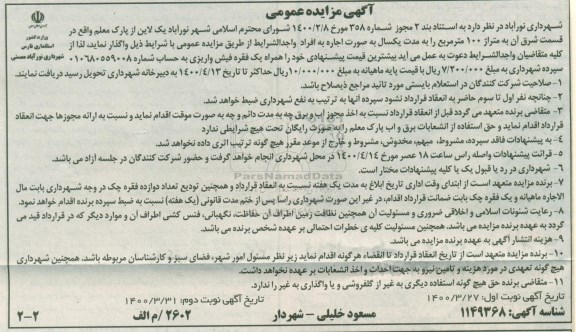 آگهی مزایده عمومی
وزارت کشور
استانداری فارس
شهرداری نورآباد ممسنی
شهرداری نورآباد در نظر دارد به استناد بند ۲ مجوز شماره ۳۵۸ مورخ ۱۴۰۰/۲/۸ شورای محترم اسلامی شهر نورآباد یک لاین از پارک معلم واقع در
قسمت شرق آن به متراژ ۱۰۰ مترمربع را به مدت یکسال به صورت اجاره به افراد واجدالشرایط از طریق مزایده عمومی با شرایط ذیل واگذار نماید، لذا از
کلیه متقاضیان واجدالشرایط دعوت به عمل می آید بیشترین قیمت پیشنهادی خود را همراه یک فقره فیش واریزی به حساب شماره ۰۱۰۶۸۰۵۵۹۰۰۸
سپرده شهرداری به مبلغ ۷/۲۰۰/۰۰۰ ریال با قیمت پایه ماهیانه به مبلغ ۱۰/۰۰۰/۰۰۰ ریال حداکثر تا تاریخ ۱۴۰۰/۴/۱۳ به دبیرخانه شهرداری تحویل رسید دریافت نمایند.
۱- صلاحیت شرکت کنندگان در استعلام بایستی مورد تائید مراجع ذیصلاح باشد.
۲- چنانچه نفر اول تا سوم حاضر به انعقاد قرارداد نشود سپرده آنها به ترتیب به نفع شهرداری ضبط خواهد شد.
۳- متقاضی برنده متعهد می گردد قبل از انعقاد قرارداد نسبت به اخذ مجوز اب و برق چه به مدت دائم و چه به صورت موقت اقدام نماید و نسبت به ارائه مجوزها جهت انعقاد
قرارداد اقدام نماید و حق استفاده از انشعابات برق و اب پارک معلم را به صورت رایگان تحت هیچ شرایطی ندارد
۴- به پیشنهادات فاقد سپرده، مشروط، مبهم، مخدوش، مشروط و خارج از موعد مقرر هیچ گونه ترتیب اثری داده نخواهد شد.
۵- قرائت پیشنهادات واصله راس ساعت ۱۸ عصر مورخ ۱۴۰۰/۴/۱۴ در محل شهرداری انجام خواهد گرفت و حضور شرکت کنندگان در جلسه آزاد می باشد.
۶- شهرداری در رد یا قبول یک یا کلیه پیشنهادات مختار است.
۷- برنده مزایده متعهد است از ابتدای وقت اداری تاریخ ابلاغ به مدت یک هفته نسبت به انعقاد قرارداد و همچنین تودیع تعداد دوازده فقره چک در وجه شهرداری بابت مال
الاجاره ماهیانه و یک فقره چک بابت ضمانت قرارداد اقدام، در غیر این صورت شهرداری راسا پس از ختم مدت قانونی (یک هفته) نسبت به ضبط سپرده برنده اقدام خواهد نمود.
۸- رعایت شئونات اسلامی و اخلاقی ضروری و مسئولیت آن همچنین نظافت زمین اطراف آن حفاظت، نگهبانی، فنس کشی اطراف آن و موارد دیگر که در قرارداد قید می
گردد به عهده برنده مزایده می باشد. همچنین مسئولیت کلیه ی خطرات احتمالی بر عهده شخص برنده می باشد.
۹- هزینه انتشار آگهی به عهده برنده مزایده می باشد.
۱۰- برنده مزایده متعهد است از تاریخ انعقاد قرارداد تا انقضاء هرگونه اقدام نماید زیر نظر مسئول امور شهر، فضای سبز و کارشناسان مربوطه باشد، همچنین شهرداری
هیچ گونه تعهدی در مورد هزینه و تامین نیرو به جهت احداث و اخذ انشعابات بر عهده نخواهد داشت.
۱۱- متقاضی برنده حق هیچ گونه استفاده دیگری به غیر از گلفروشی و یا واگذاری به غیر را ندارد.
تاریخ آگهی نوبت اول: ۱۴۰۰/۳/۲۷ تاریخ آگهی نوبت دوم: ۱۴۰۰/۳/۳۱
شناسه آگهی: ۱۱۴۹۳۶۸ مسعود خلیلی - شهردار ۲۶۰۲ / م الف ۲-۲
ParsNamadData